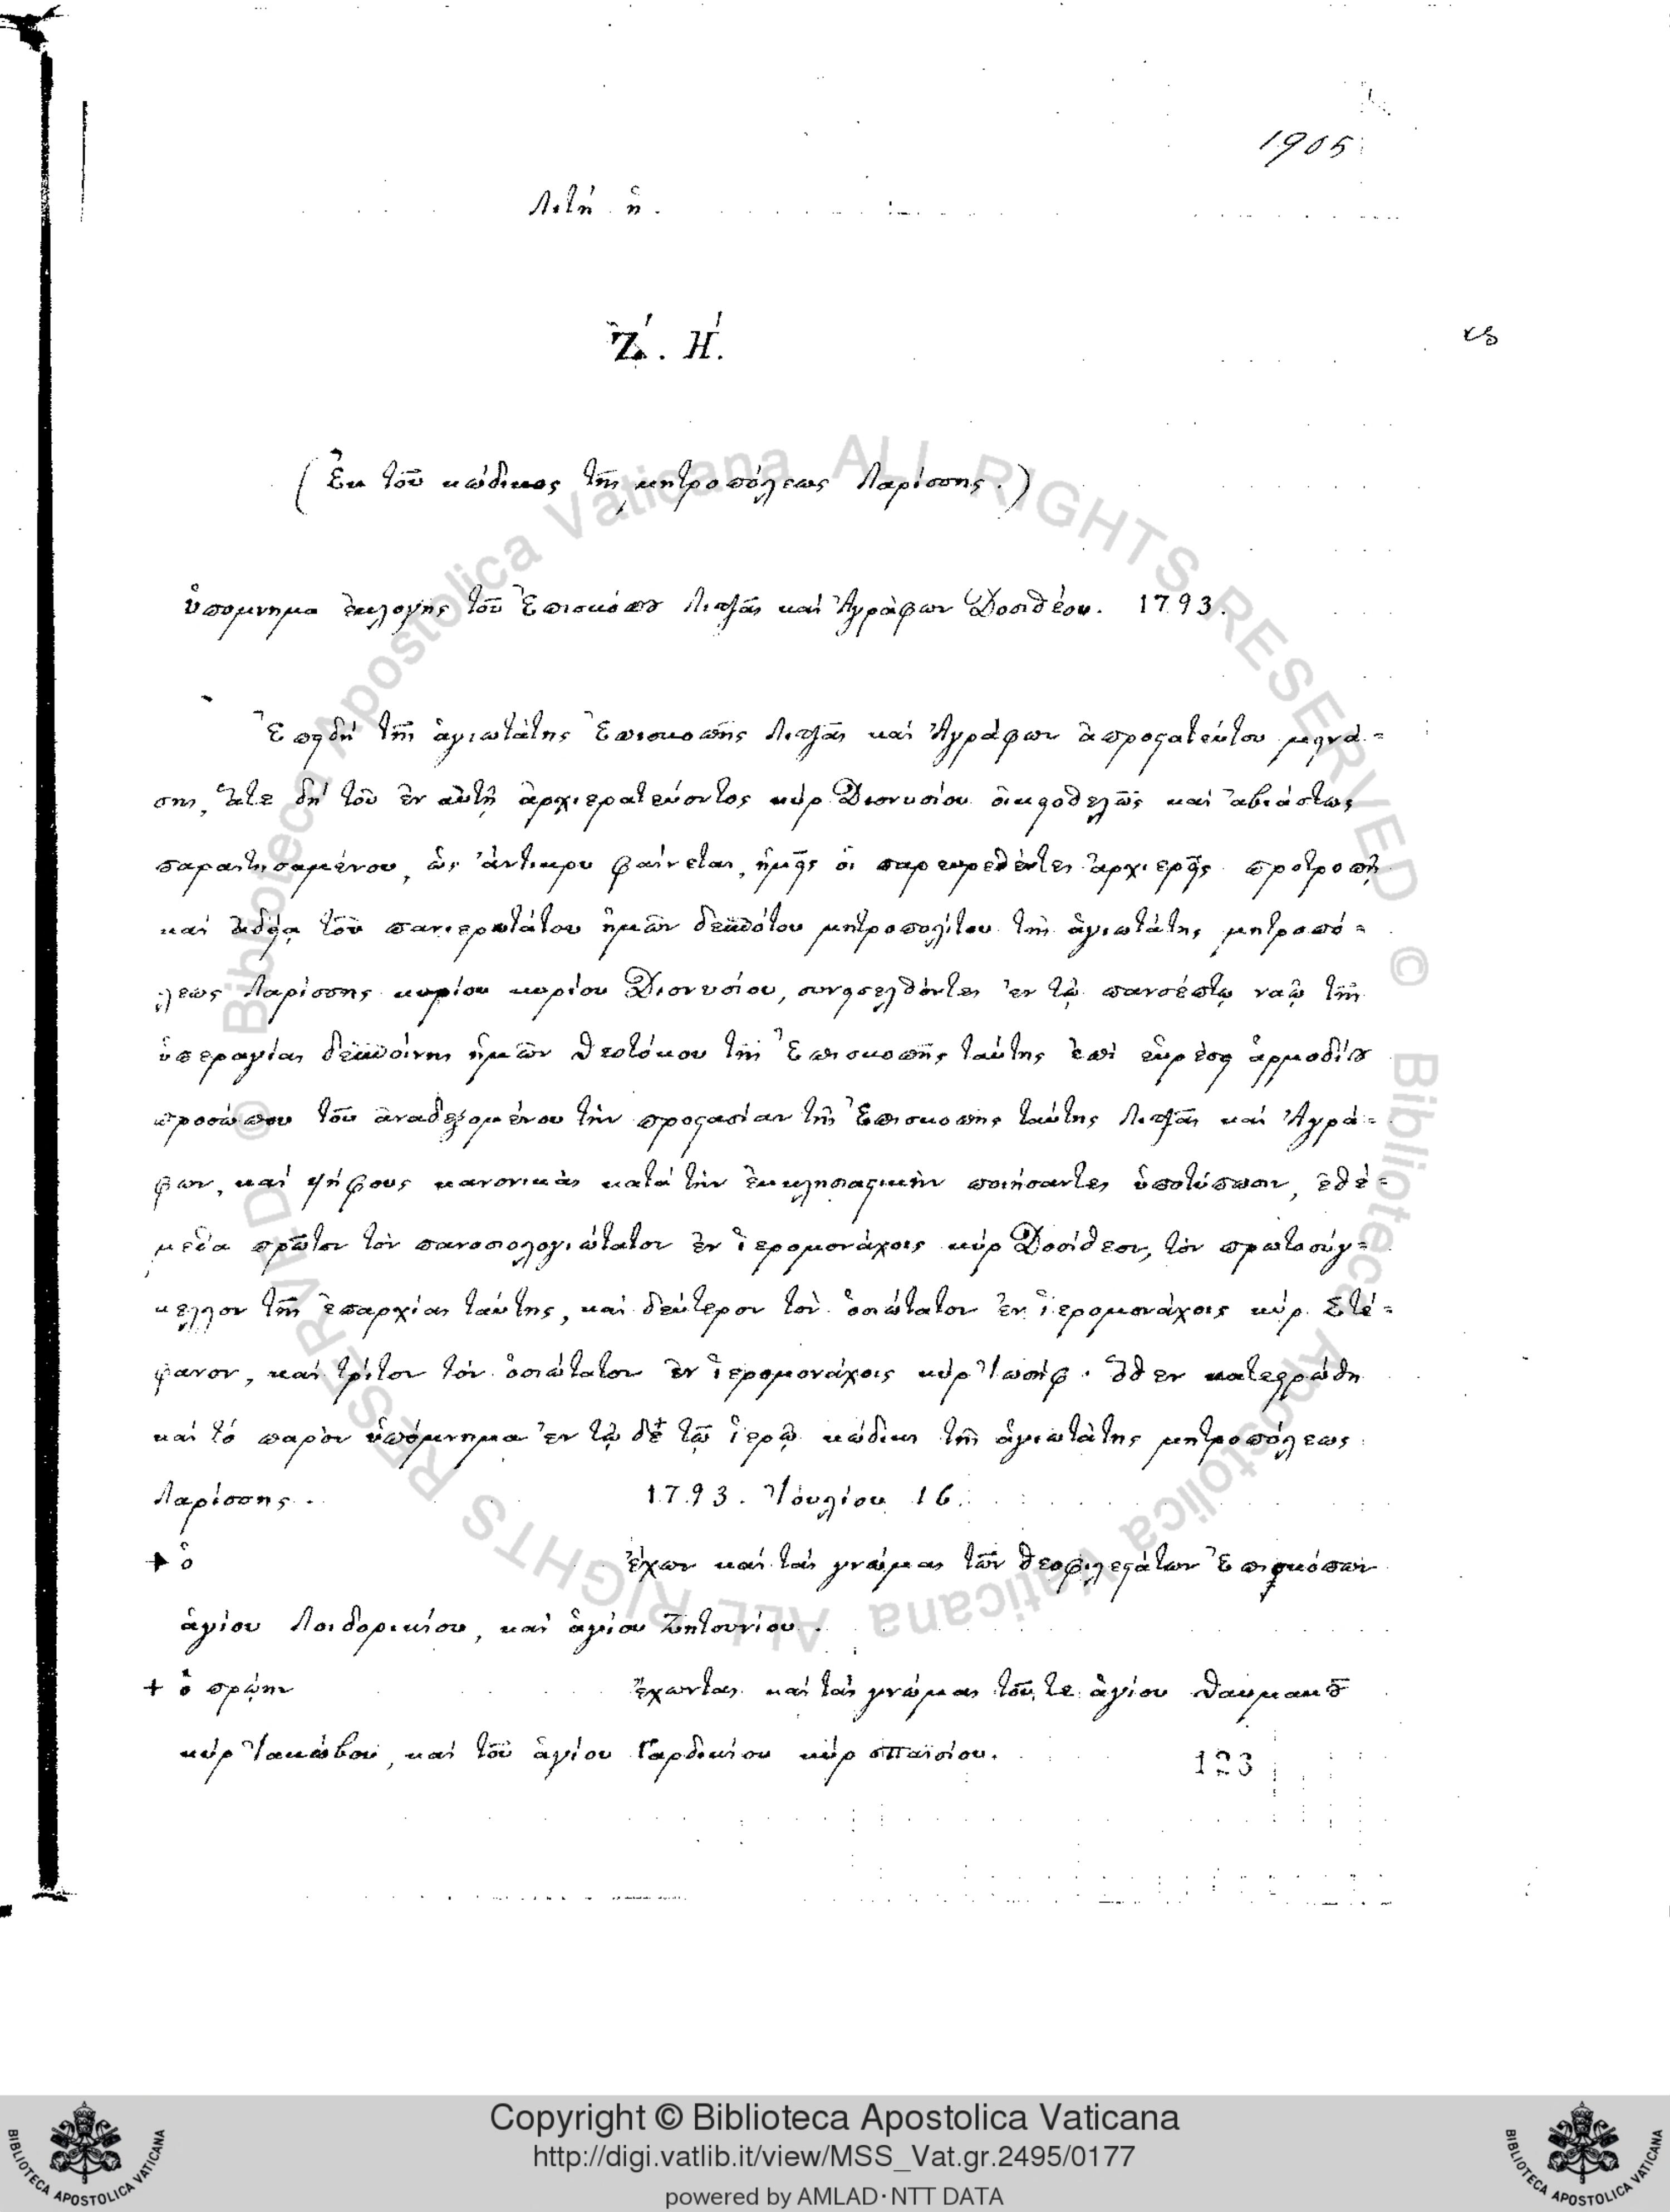 1905
Λιτὴ ἡ.
Ζ΄. Η΄.
(Ἐκ τοῦ κώδικος τῆς μητροπόλεως Λαρίσσης.)
ὑπόμνημα ἐκλογῆς τοῦ Ἐπισκόπου Λιτζᾶς καὶ Ἀγράφων Δοσιθέου. 1793.
Ἐπειδὴ τῆς ἁγιωτάτης Ἐπισκοπῆς Λιτζᾶς καὶ Ἀγράφων ἀπροστατεύτου μεινά=
σης, ἅτε δὴ τοῦ ἐν αὐτῇ ἀρχιερατεύοντος κὺρ Διονυσίου οἰκειοθελῶς καὶ ἀβιάστως
παραιτησαμένου, ὡς ἄντικρυ φαίνεται, ἡμεῖς οἱ παρευρεθέντες ἀρχιερεῖς προτροπῇ
καὶ ἀδείᾳ τοῦ πανιερωτάτου ἡμῶν δεσπότου μητροπολίτου τῆς ἁγιωτάτης μητροπό=
λεως Λαρίσσης κυρίου κυρίου Διονυσίου, συνεισελθόντες ἐν τῷ πανσέπτῳ ναῷ τῆς
ὑπεραγίας δεσποίνης ἡμῶν Θεοτόκου τῆς Ἐπισκοπῆς ταύτης ἐπὶ εὑρέσει ἁρμοδίου
προσώπου τοῦ ἀναδεξομένου τὴν προστασίαν τῆς Ἐπισκοπῆς ταύτης Λιτζᾶς καὶ Ἀγρά=
φων, καὶ ψήφους κανονικὰς κατὰ τὴν ἐκκλησιαστικὴν ποιήσαντες ὑποτύπωσιν, ἐθέ=
μεθα πρῶτον τὸν πανοσιολογιώτατον ἐν ἱερομονάχοις κὺρ Δοσίθεον, τὸν πρωτοσύγ=
κελλον τῆς ἐπαρχίας ταύτης, καὶ δεύτερον τὸν ὁσιώτατον ἐν ἱερομονάχοις κὺρ Στέ=
φανον, καὶ τρίτον τὸν ὁσιώτατον ἐν ἱερομονάχοις κὺρ Ἰωσήφ. ὅθεν κατεστρώθη
καὶ τὸ παρὸν ὑπόμνημα ἐν τῷδε τῷ ἱερῷ κώδικι τῆς ἁγιωτάτης μητροπόλεως
Λαρίσσης. 1793. Ἰουλίου 16.
+ ὁ ἔχων καὶ τὰς γνώμας τῶν θεοφιλεστάτων Ἐπισκόπων
ἁγίου Λοιδορικίου, καὶ ἁγίου Ζητουνίου.
+ ὁ πρώην ἔχωντας καὶ τὰς γνώμας τοῦ τε ἁγίου Θαυμακοῦ
κὺρ Ἰακώβου, καὶ τοῦ ἁγίου Γαρδικίου κὺρ Παϊσίου.
123
© Biblioteca Apostolica Vaticana ALL RIGHTS RESERVED
Copyright © Biblioteca Apostolica Vaticana
http://digi.vatlib.it/view/MSS_Vat.gr.2495/0177
powered by AMLAD·NTT DATA
BIBLIOTECA APOSTOLICA VATICANA
BIBLIOTECA APOSTOLICA VATICANA